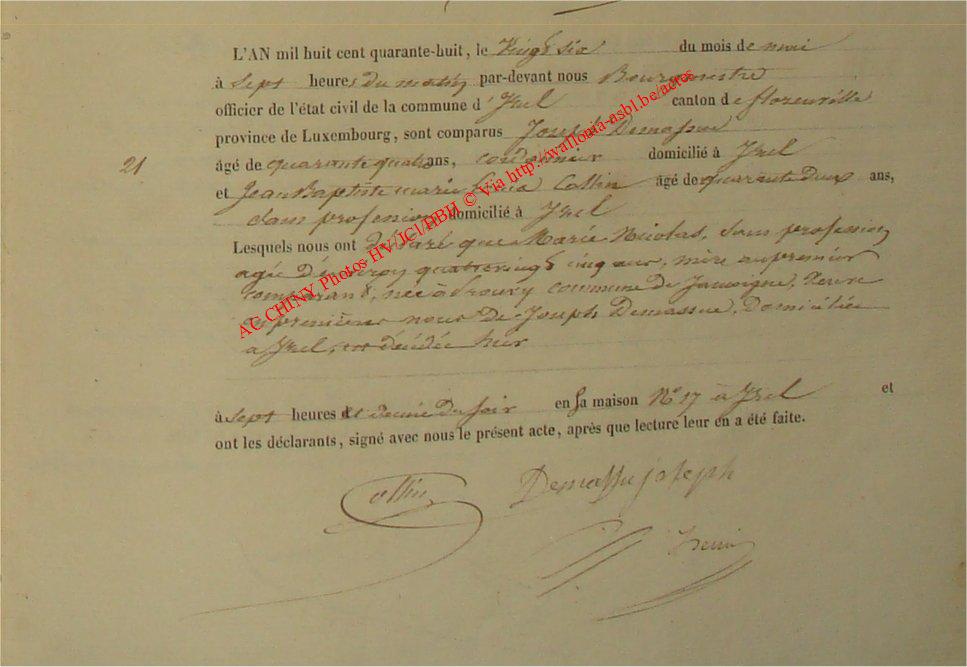 L'AN mil huit cent quarante-huit, le Vingt six du mois de mai
à Sept heures du matin par-devant nous Bourgmestre
officier de l'état civil de la commune d'Izel canton de florenville
province de Luxembourg, sont comparus Joseph Demassue
21. âgé de quarante quatre ans, cordonnier domicilié à Izel
et Jean Baptiste marie Collin âgé de quarante deux ans,
Sans profession domicilié à Izel
Lesquels nous ont déclaré que Marie Nicolas, Sans profession
agée d'environ quatrevingt cinq ans, mère au premier
comparant, née à Prouvy commune de Jamoigne, Veuve
en premières noces de Joseph Demassue, Domiciliée
à Izel, est décédée hier
à Sept heures et demie du soir en sa maison No 17 à Izel et
ont les déclarants, signé avec nous le présent acte, après que lecture leur en a été faite.
Collin Demassu joseph
AC CHINY, Photos HV/JCl/PBH © Via http://wallonia-asbl.be/actes